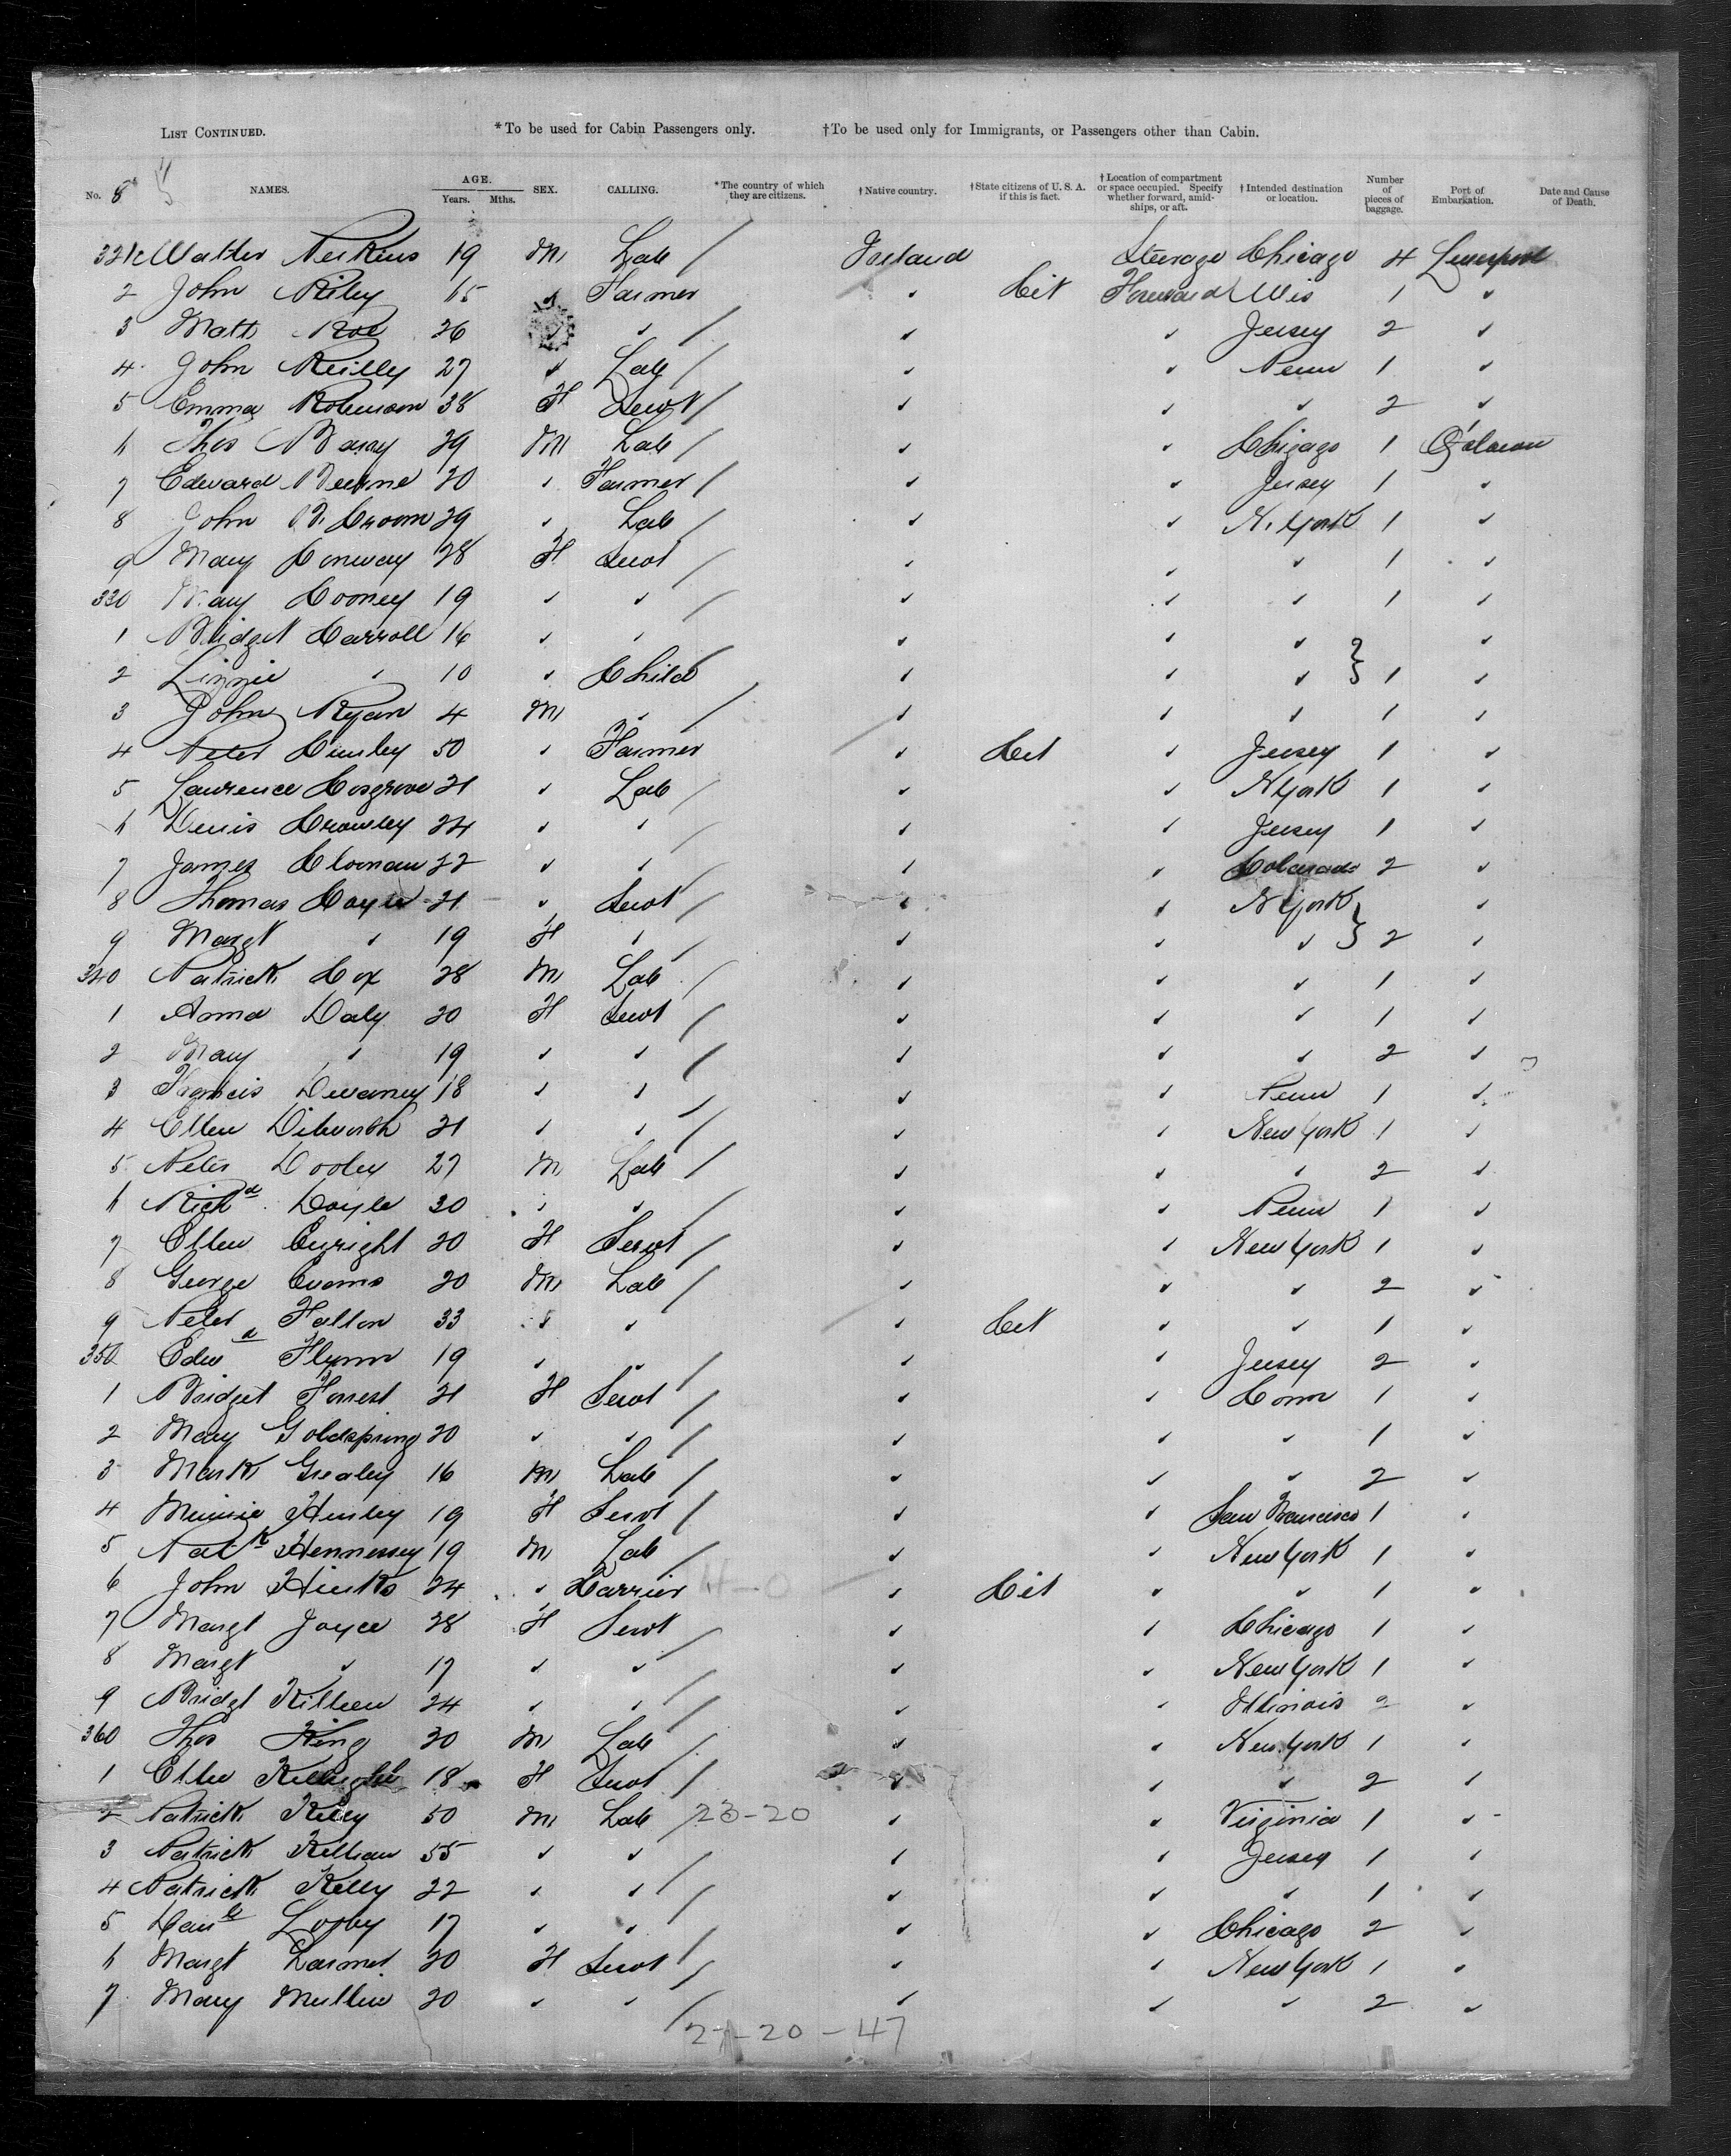 LIST CONTINUED. *To be used for Cabin Passengers only. †To be used only for Immigrants, or Passengers other than Cabin.
No. 8 NAMES. AGE. Years. Mths. SEX. CALLING. *The country of which they are citizens. †Native country. †State citizens of U. S. A. if this is fact. †Location of compartment or space occupied. Specify whether forward, amidships, or aft. †Intended destination or location. Number of pieces of baggage. Port of Embarkation. Date and Cause of Death.
321 Walter Perkins 19 M Lab / Ireland Steerage Chicago 4 Liverpool
2 John Riley 65 " Farmer " Cit Forward Wis 1 "
3 Matt Roe 26 " " / " " Jersey 2 "
4 John Reilly 27 " Lab / " " Penn 1 "
5 Emma Robinson 38 F Servt / " " " 2 "
6 Thos 29 M Lab / " " Chicago 1
7 Edward 20 " Farmer / " " Jersey 1 "
8 John 29 " Lab / " " N. York 1 "
9 Mary Conway 28 F Servt / " " " 1 "
330 Mary Cooney 19 " " / " " " 1 "
1 Bridget Carroll 16 " " " " " "
2 Lizzie " 10 " Child " " " } 1 "
3 John Ryan 4 M " / " " " 1 "
4 Peter 50 " Farmer " Cit " Jersey 1 "
5 Laurence Cosgrove 21 " Lab / " " N York 1 "
6 Denis Crowley 24 " " / " " Jersey 1 "
7 James Cloonan 22 " " / " " Colorado 2 "
8 Thomas Coyle 21 " Servt / " " N York "
9 Margt " 19 F " / " " " } 2 "
340 Patrick Cox 28 M Lab / " " " 1 "
1 Anna Daly 20 F Servt / " " " 1 "
2 Mary " 19 " " / " " " 2 "
3 Francis Devaney 18 " " / " " Penn 1 "
4 Ellen Dilworth 21 " " / " " New York 1 "
5 Peter Dooley 27 M Lab / " " " 2 "
6 Richd Doyle 30 " " / " " Penn 1 "
7 Ellen Enright 20 F Servt / " " New York 1 "
8 George Evans 20 M Lab / " " " 2 "
9 Peter Fallon 33 " " " Cit " " 1 "
350 Edwd Flynn 19 " " / " " Jersey 2 "
1 Bridget Forrest 21 F Servt / " " Conn 1 "
2 Mary Goldspring 20 " " / " " " 1 "
3 Mark Grealey 16 M Lab / " " " 2 "
4 Minnie Henley 19 F Servt / " " San Francisco 1 "
5 Patk Hennessey 19 M Lab / " " New York 1 "
6 John Hinks 24 " Carrier " Cit " " 1 "
7 Margt Joyce 28 F Servt / " " Chicago 1 "
8 Margt " 17 " " / " " New York 1 "
9 Bridgt Killeen 24 " " / " " Illinois 2 "
360 Thos King 20 M Lab / " " New York 1 "
1 Ellen 18 F Servt / " " " 2 "
2 Patrick Kelly 50 M Lab / 23-20 " " Virginia 1 "
3 Patrick Killian 55 " " / " " Jersey 1 "
4 Patrick Kelly 22 " " / " " " 1 "
5 Danl Looby 17 " " / " " Chicago 2 "
6 Margt Larmet 20 F Servt / " " New York 1 "
7 Mary Mullin 20 " " / " " " 2 "
27-20-47